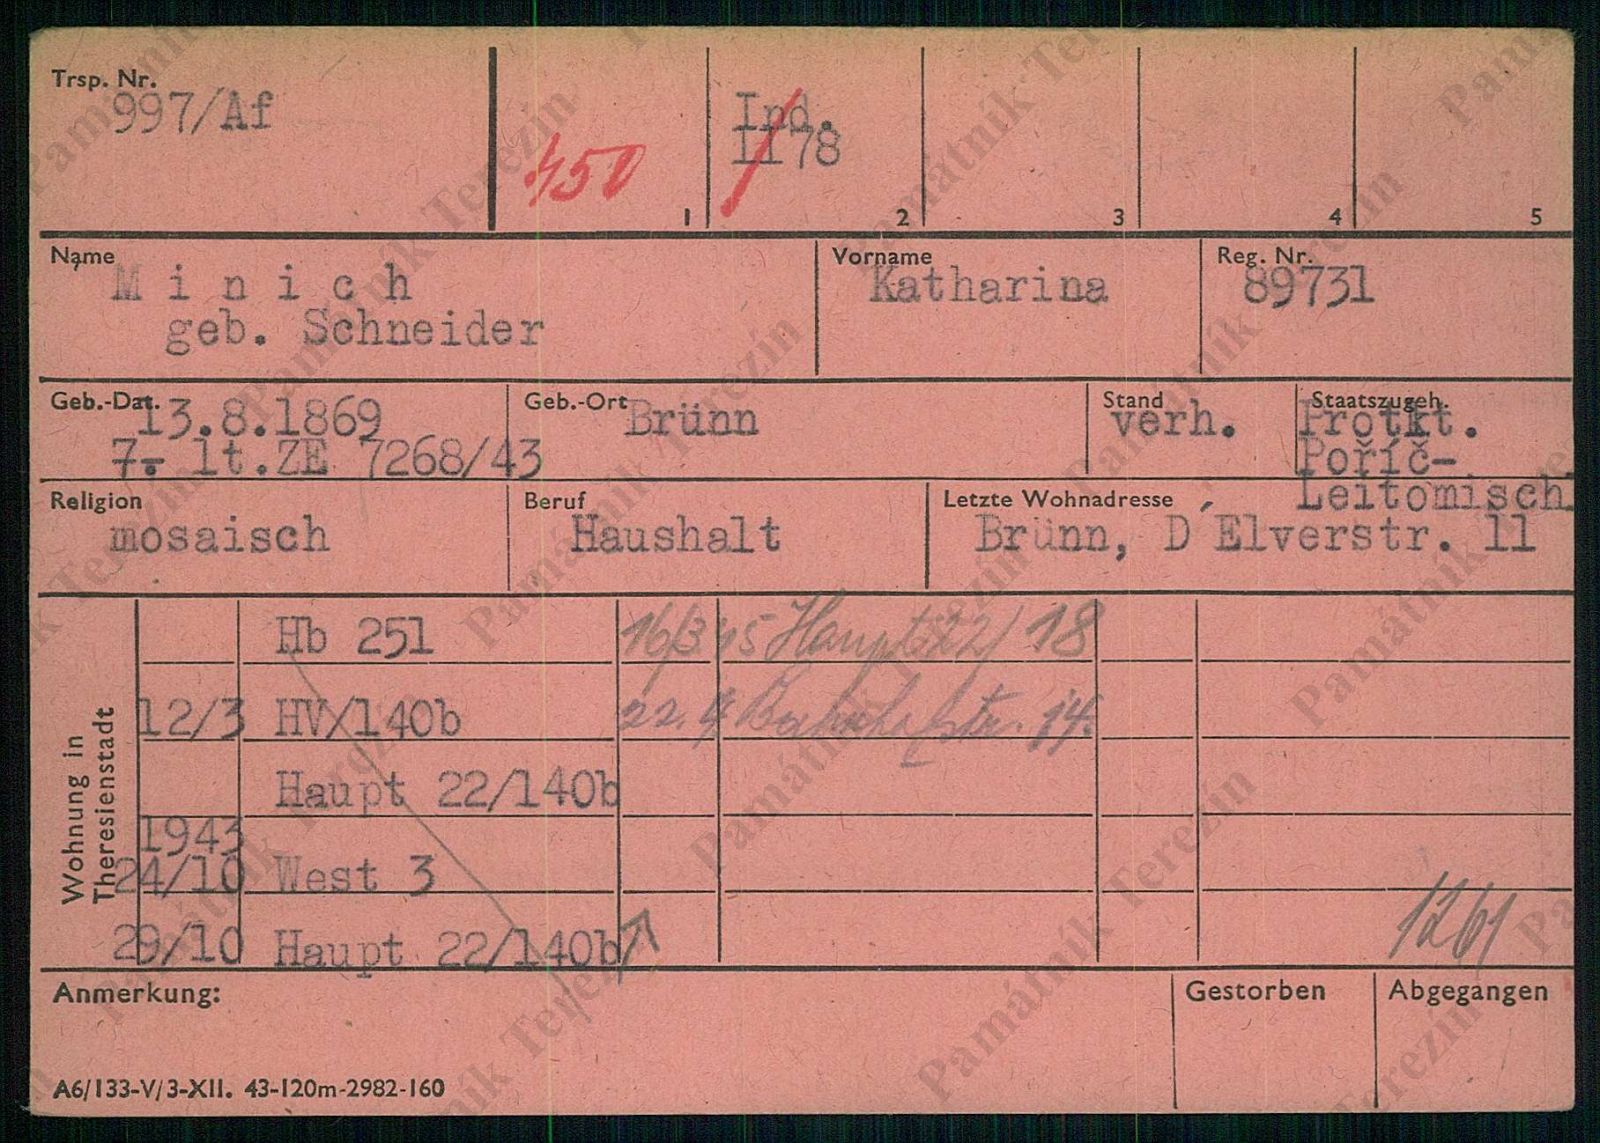 Trsp. Nr.
997/Af
450
Ind.
1178
1
2
3
4
5
Name
Minich
geb. Schneider
Vorname
Katharina
Reg. Nr.
89731
Geb.-Dat.
13.8.1869
7.- lt.ZE 7268/43
Geb.-Ort
Brünn
Stand
verh.
Staatszugeh.
Protkt.
Poříč-
Leitomisch
Religion
mosaisch
Beruf
Haushalt
Letzte Wohnadresse
Brünn, D´Elverstr. 11
Wohnung in
Theresienstadt
Hb 251
12/3 HV/140b
Haupt 22/140b
1943
24/10 West 3
29/10 Haupt 22/140b
16/3 45 Haupt 22/18
22.4 Bahnhofstr. 14.
1261
Anmerkung:
Gestorben
Abgegangen
A6/133-V/3-XII. 43-120m-2982-160
Památník Terezín